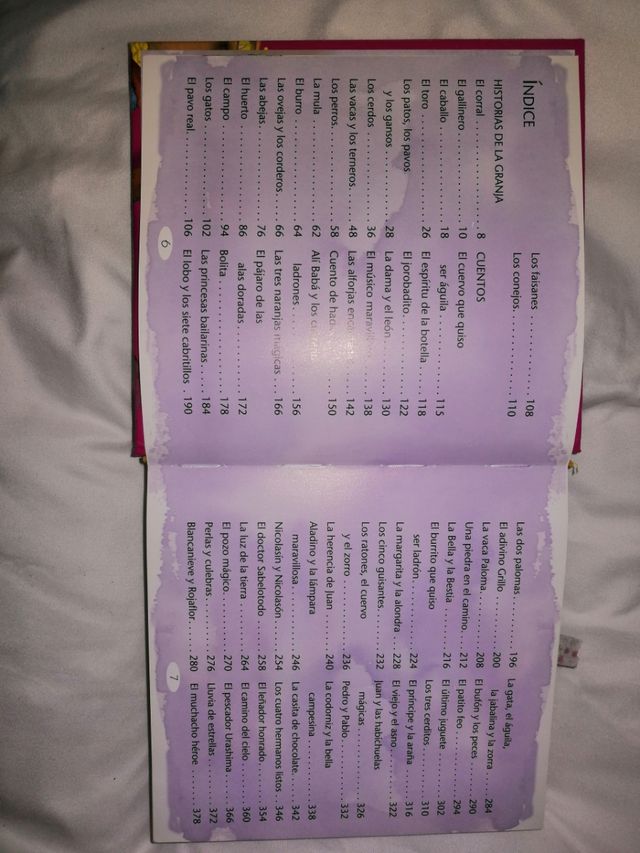 ÍNDICE
HISTORIAS DE LA GRANJA
El corral . . . . . . . . . . . . . . . . 8
El gallinero . . . . . . . . . . . . . 10
El caballo . . . . . . . . . . . . . . 18
El toro . . . . . . . . . . . . . . . . . 26
Los patos, los pavos
y los gansos . . . . . . . . . . . 28
Los cerdos . . . . . . . . . . . . . 36
Las vacas y los terneros. . . . 48
Los perros. . . . . . . . . . . . . . 58
La mula . . . . . . . . . . . . . . . 62
El burro . . . . . . . . . . . . . . . 64
Las ovejas y los corderos. . . 66
Las abejas. . . . . . . . . . . . . . 76
El huerto . . . . . . . . . . . . . . 86
El campo . . . . . . . . . . . . . . 94
Los gatos . . . . . . . . . . . . . 102
El pavo real. . . . . . . . . . . . 106
Los faisanes . . . . . . . . . . . 108
Los conejos. . . . . . . . . . . . 110
CUENTOS
El cuervo que quiso
ser águila . . . . . . . . . . . . 115
El espíritu de la botella . . . 118
El jorobadito. . . . . . . . . . . 122
La dama y el león . . . . . . . 130
El músico . . . . . 138
Las alforjas . . . . . 142
Cuento de . . . . . 150
Alí Babá y los
ladrones . . . . . . . . . . . . 156
Las tres naranjas mágicas . . . . 166
El pájaro de las
alas doradas. . . . . . . . . . 172
Bolita . . . . . . . . . . . . . . . . 178
Las princesas bailarinas . . . 184
El lobo y los siete cabritillos . 190
6
Las dos palomas . . . . . . . . 196
El adivino Grillo . . . . . . . . 200
La vaca Paloma. . . . . . . . . 208
Una piedra en el camino. . . 212
La Bella y la Bestia . . . . . . 216
El burrito que quiso
ser ladrón. . . . . . . . . . . . 224
La margarita y la alondra . . 228
Los cinco guisantes. . . . . . 232
Los ratones, el cuervo
y el zorro . . . . . . . . . . . . 236
La herencia de Juan . . . . . 240
Aladino y la lámpara
maravillosa . . . . . . . . . . 246
Nicolasín y Nicolasón. . . . 254
El doctor Sabelotodo . . . . 258
La luz de la tierra . . . . . . . 264
El pozo mágico. . . . . . . . . 270
Perlas y culebras. . . . . . . . 276
Blancanieve y Rojaflor. . . . 280
La gata, el águila,
la jabalina y la zorra . . . . 284
El bufón y los peces . . . . . 290
El patito feo . . . . . . . . . . . 294
El último juguete . . . . . . . 302
Los tres cerditos . . . . . . . . 310
El príncipe y la araña . . . . 316
El viejo y el asno . . . . . . . 322
Juan y las habichuelas
mágicas . . . . . . . . . . . . . 326
Pedro y Pablo . . . . . . . . . . 332
La codorniz y la bella
campesina . . . . . . . . . . . 338
La casita de chocolate. . . . 342
Los cuatro hermanos listos . 346
El leñador honrado . . . . . . 354
El camino del cielo . . . . . . 360
El pescador Urashima . . . . 366
Lluvia de estrellas . . . . . . . 372
El muchacho héroe . . . . . . 378
7